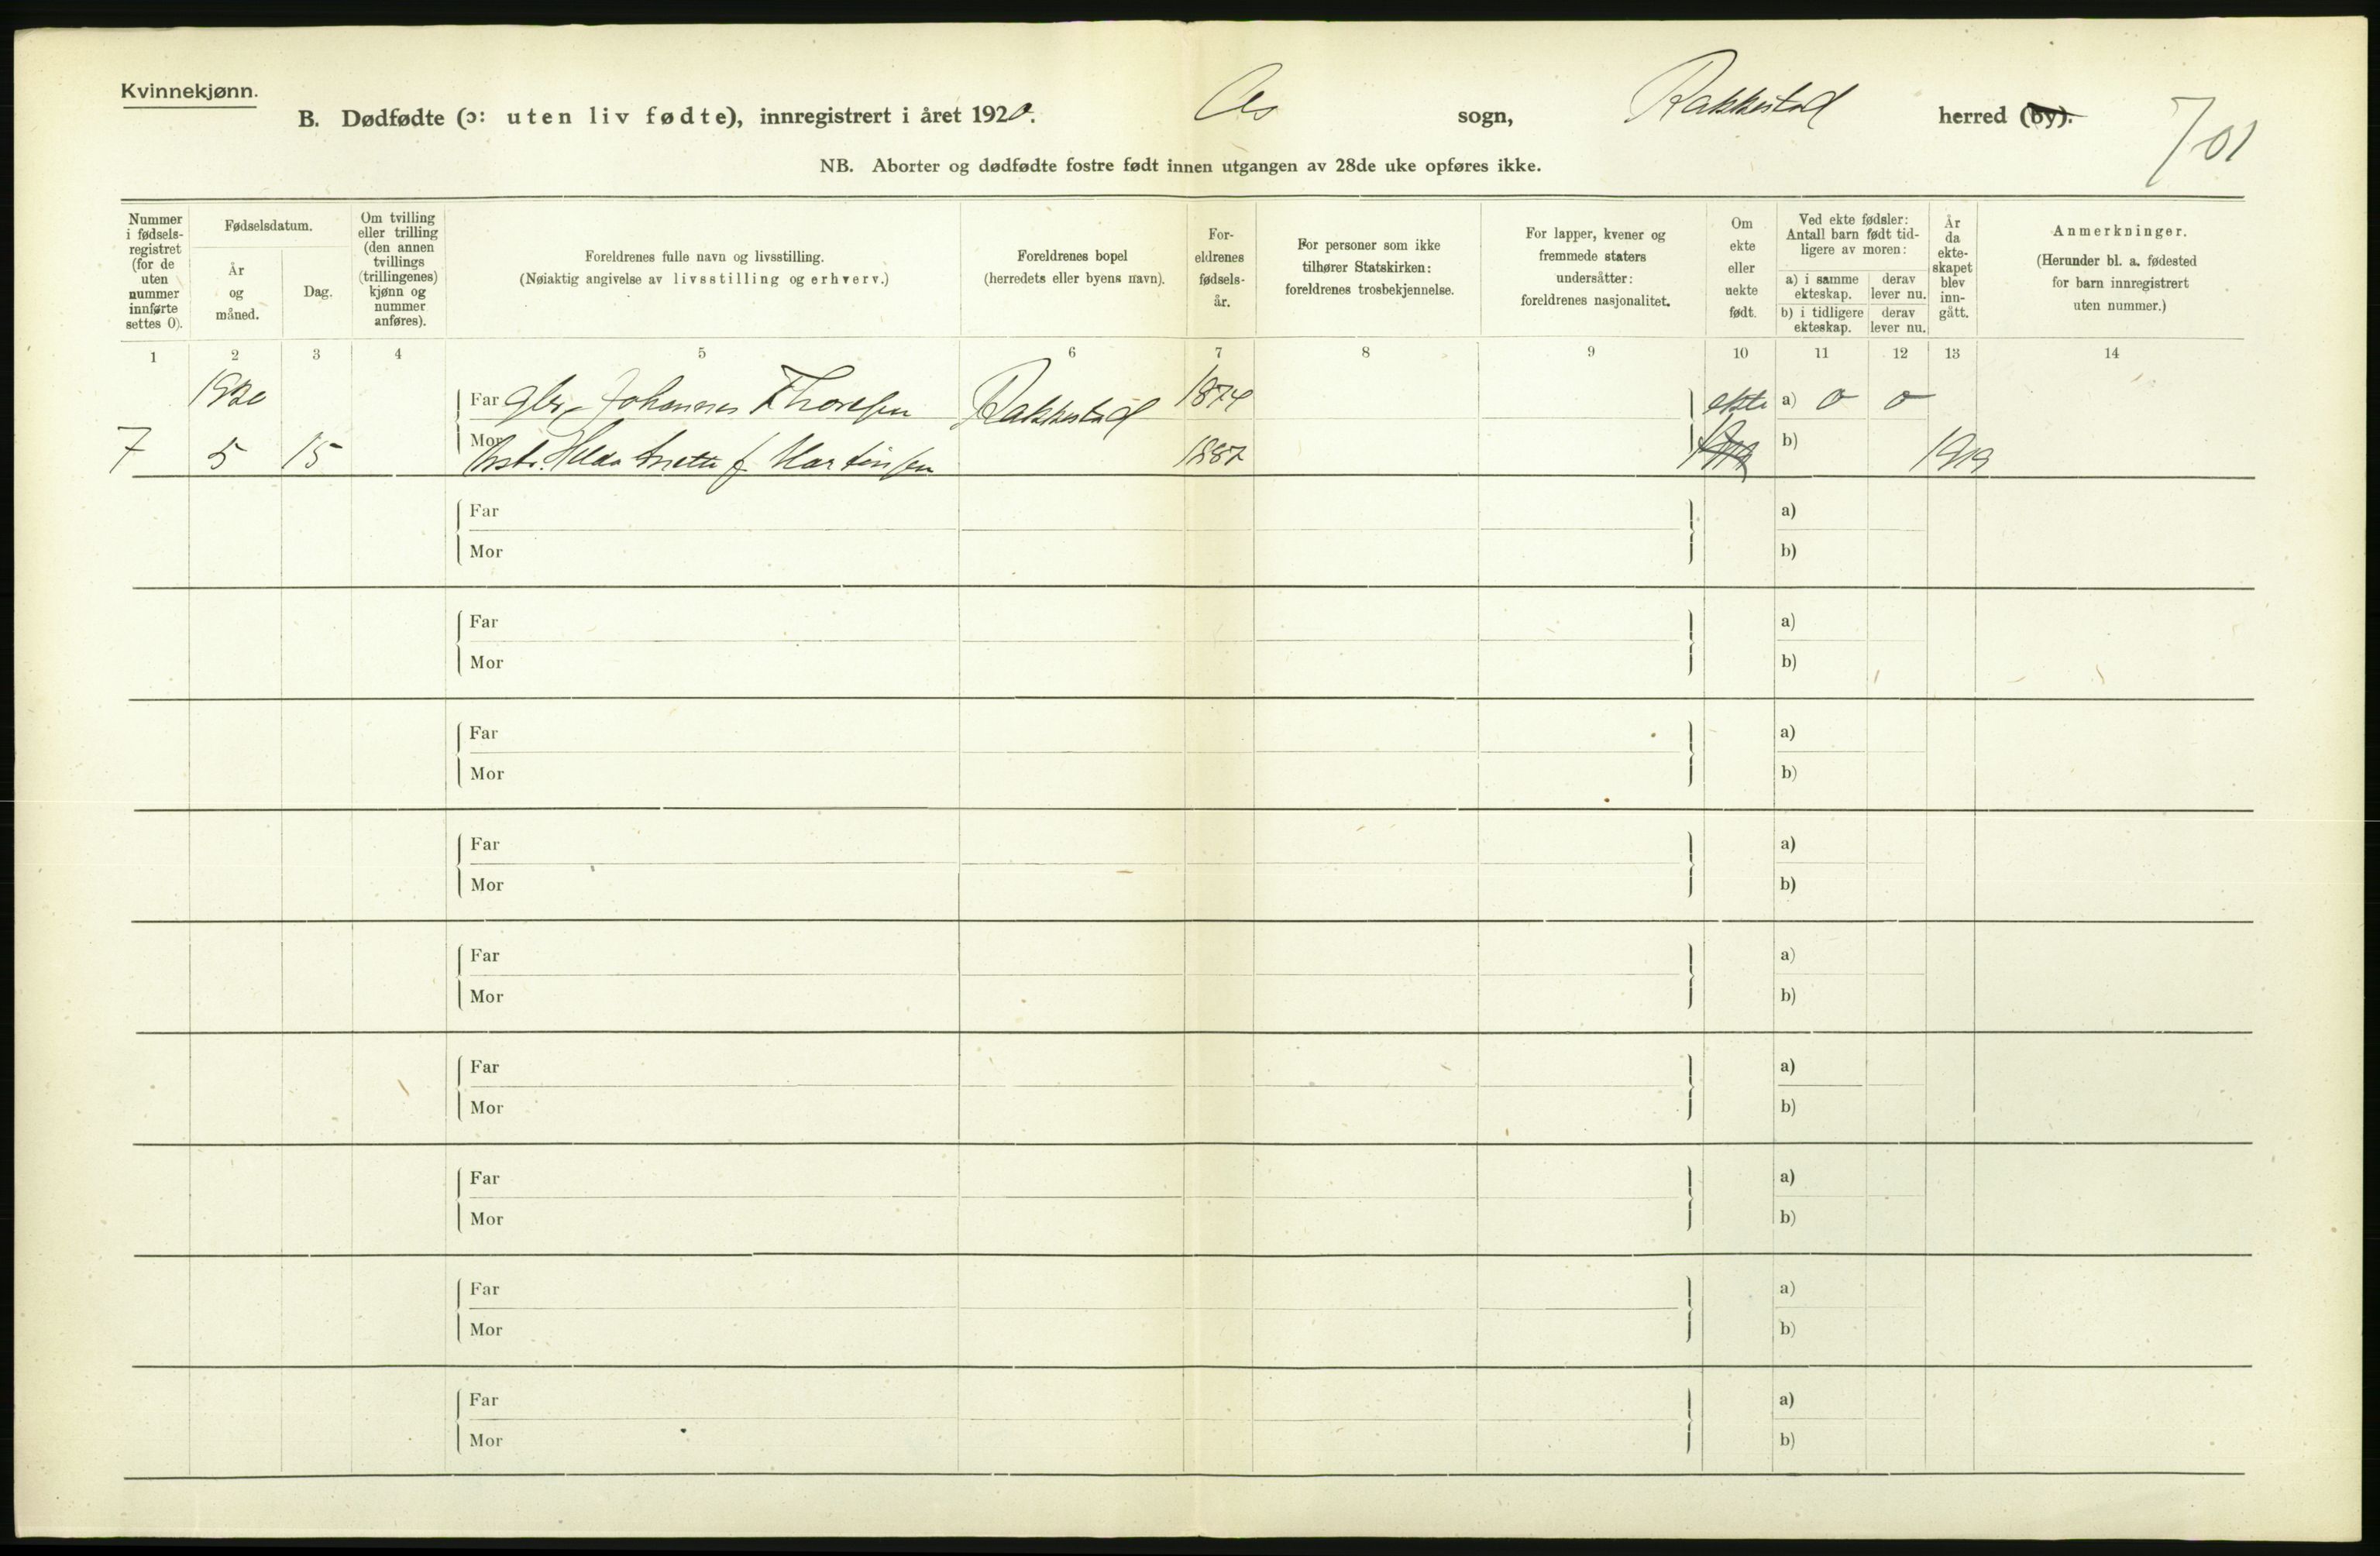 Kvinnekjønn.
B. Dødfødte (ɔ: uten liv fødte), innregistrert i året 1920. Os sogn, Rakkestad herred (by).
701
NB. Aborter og dødfødte fostre født innen utgangen av 28de uke opføres ikke.
Nummer
i fødsels-
registret
(for de
uten
nummer
innførte
settes 0).
Fødselsdatum.
År
og
måned.
Dag.
Om tvilling
eller trilling
(den annen
tvillings
(trillingenes)
kjønn og
nummer
anføres).
Foreldrenes fulle navn og livsstilling.
(Nøiaktig angivelse av livsstilling og erhverv.)
Foreldrenes bopel
(herredets eller byens navn).
For-
eldrenes
fødsels-
år.
For personer som ikke
tilhører Statskirken:
foreldrenes trosbekjennelse.
For lapper, kvener og
fremmede staters
undersåtter:
foreldrenes nasjonalitet.
Om
ekte
eller
uekte
født.
Ved ekte fødsler:
Antall barn født tid-
ligere av moren:
a) i samme
ekteskap.
derav
lever nu.
b) i tidligere
ekteskap.
derav
lever nu.
År
da
ekte-
skapet
blev
inn-
gått.
Anmerkninger.
(Herunder bl. a. fødested
for barn innregistrert
uten nummer.)
1 2 3 4 5 6 7 8 9 10 11 12 13 14
1920 Far Johannes Thoresen Rakkestad 1874 ekte a) 0 0
7 5 15 Mor Hilda f. Martinsen 1887 b) 1919
Far a)
Mor b)
Far a)
Mor b)
Far a)
Mor b)
Far a)
Mor b)
Far a)
Mor b)
Far a)
Mor b)
Far a)
Mor b)
Far a)
Mor b)
Far a)
Mor b)